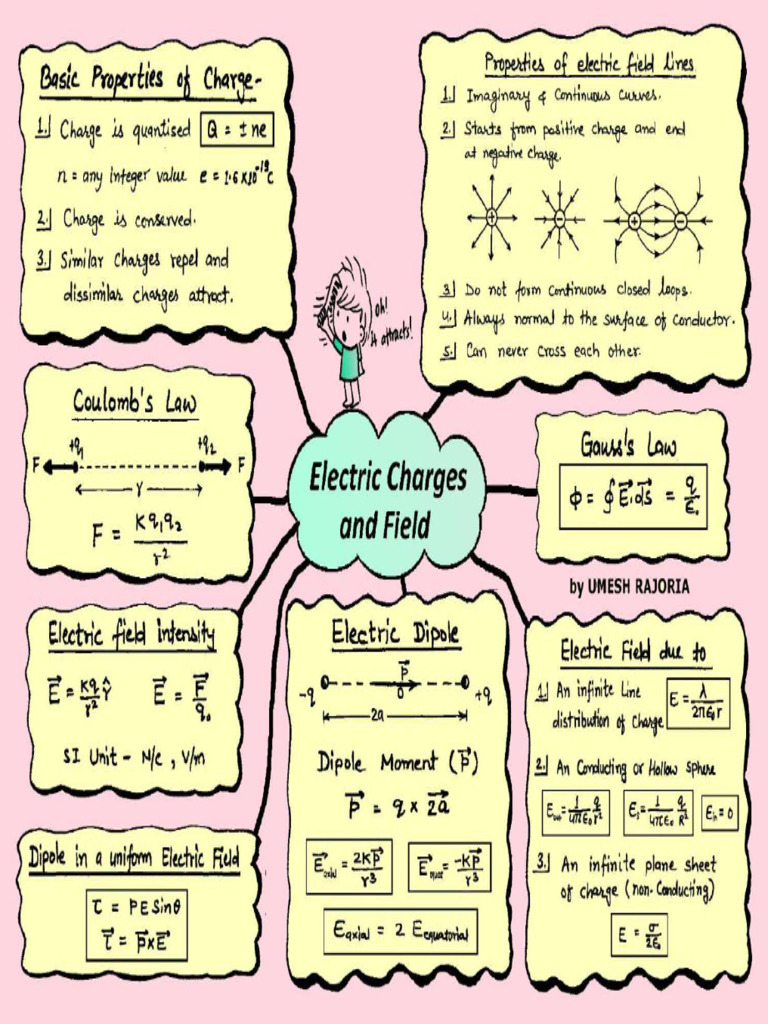 Basic Properties of Charge-
1. Charge is quantised Q = ± ne
n = any integer value e = 1.6×10⁻¹⁹C
2. Charge is conserved.
3. Similar charges repel and
dissimilar charges attract.
Properties of electric field lines
1. Imaginary & Continuous curves.
2. Starts from positive charge and end
at negative charge.
+ - + -
3. Do not form continuous closed loops.
4. Always normal to the surface of conductor.
5. Can never cross each other.
Oh!
it attracts!
Coulomb's Law
+q₁ +q₂
F F
r
F = Kq₁q₂/r²
Electric Charges
and Field
Gauss's Law
Φ = ∮ E⃗.ds⃗ = q/ε₀
by UMESH RAJORIA
Electric field intensity
E⃗ = Kq/r² r̂ E⃗ = F⃗/q₀
SI Unit - N/c , V/m
Electric Dipole
P⃗
-q O +q
2a
Dipole Moment (P⃗)
P⃗ = q × 2a⃗
E⃗axial = 2KP⃗/r³ E⃗equat = -KP⃗/r³
Eaxial = 2 Eequatorial
Electric Field due to
1. An infinite Line
distribution of charge E = λ/2πε₀r
2. An Conducting or Hollow sphere
Eout = 1/4πε₀ q/r² Es = 1/4πε₀ q/R² Ein = 0
3. An infinite plane sheet
of charge (non-Conducting)
E = σ/2ε₀
Dipole in a uniform Electric Field
τ = PE Sinθ
τ⃗ = P⃗×E⃗